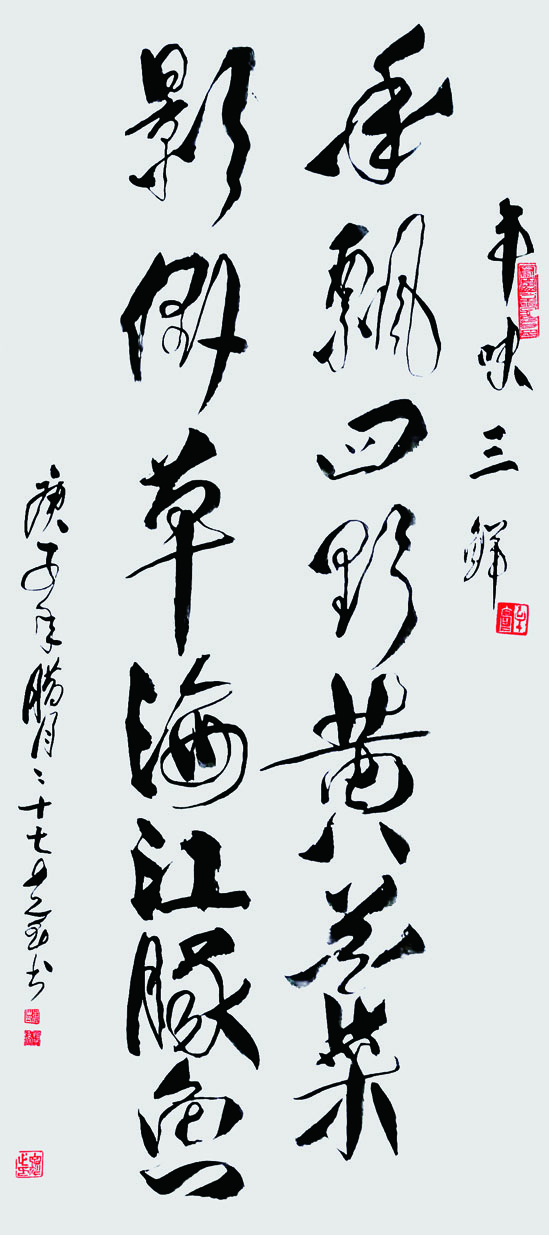 年味三鲜
香飘四野黄花菜
影草海江豚鱼
庚子年腊月二十七书